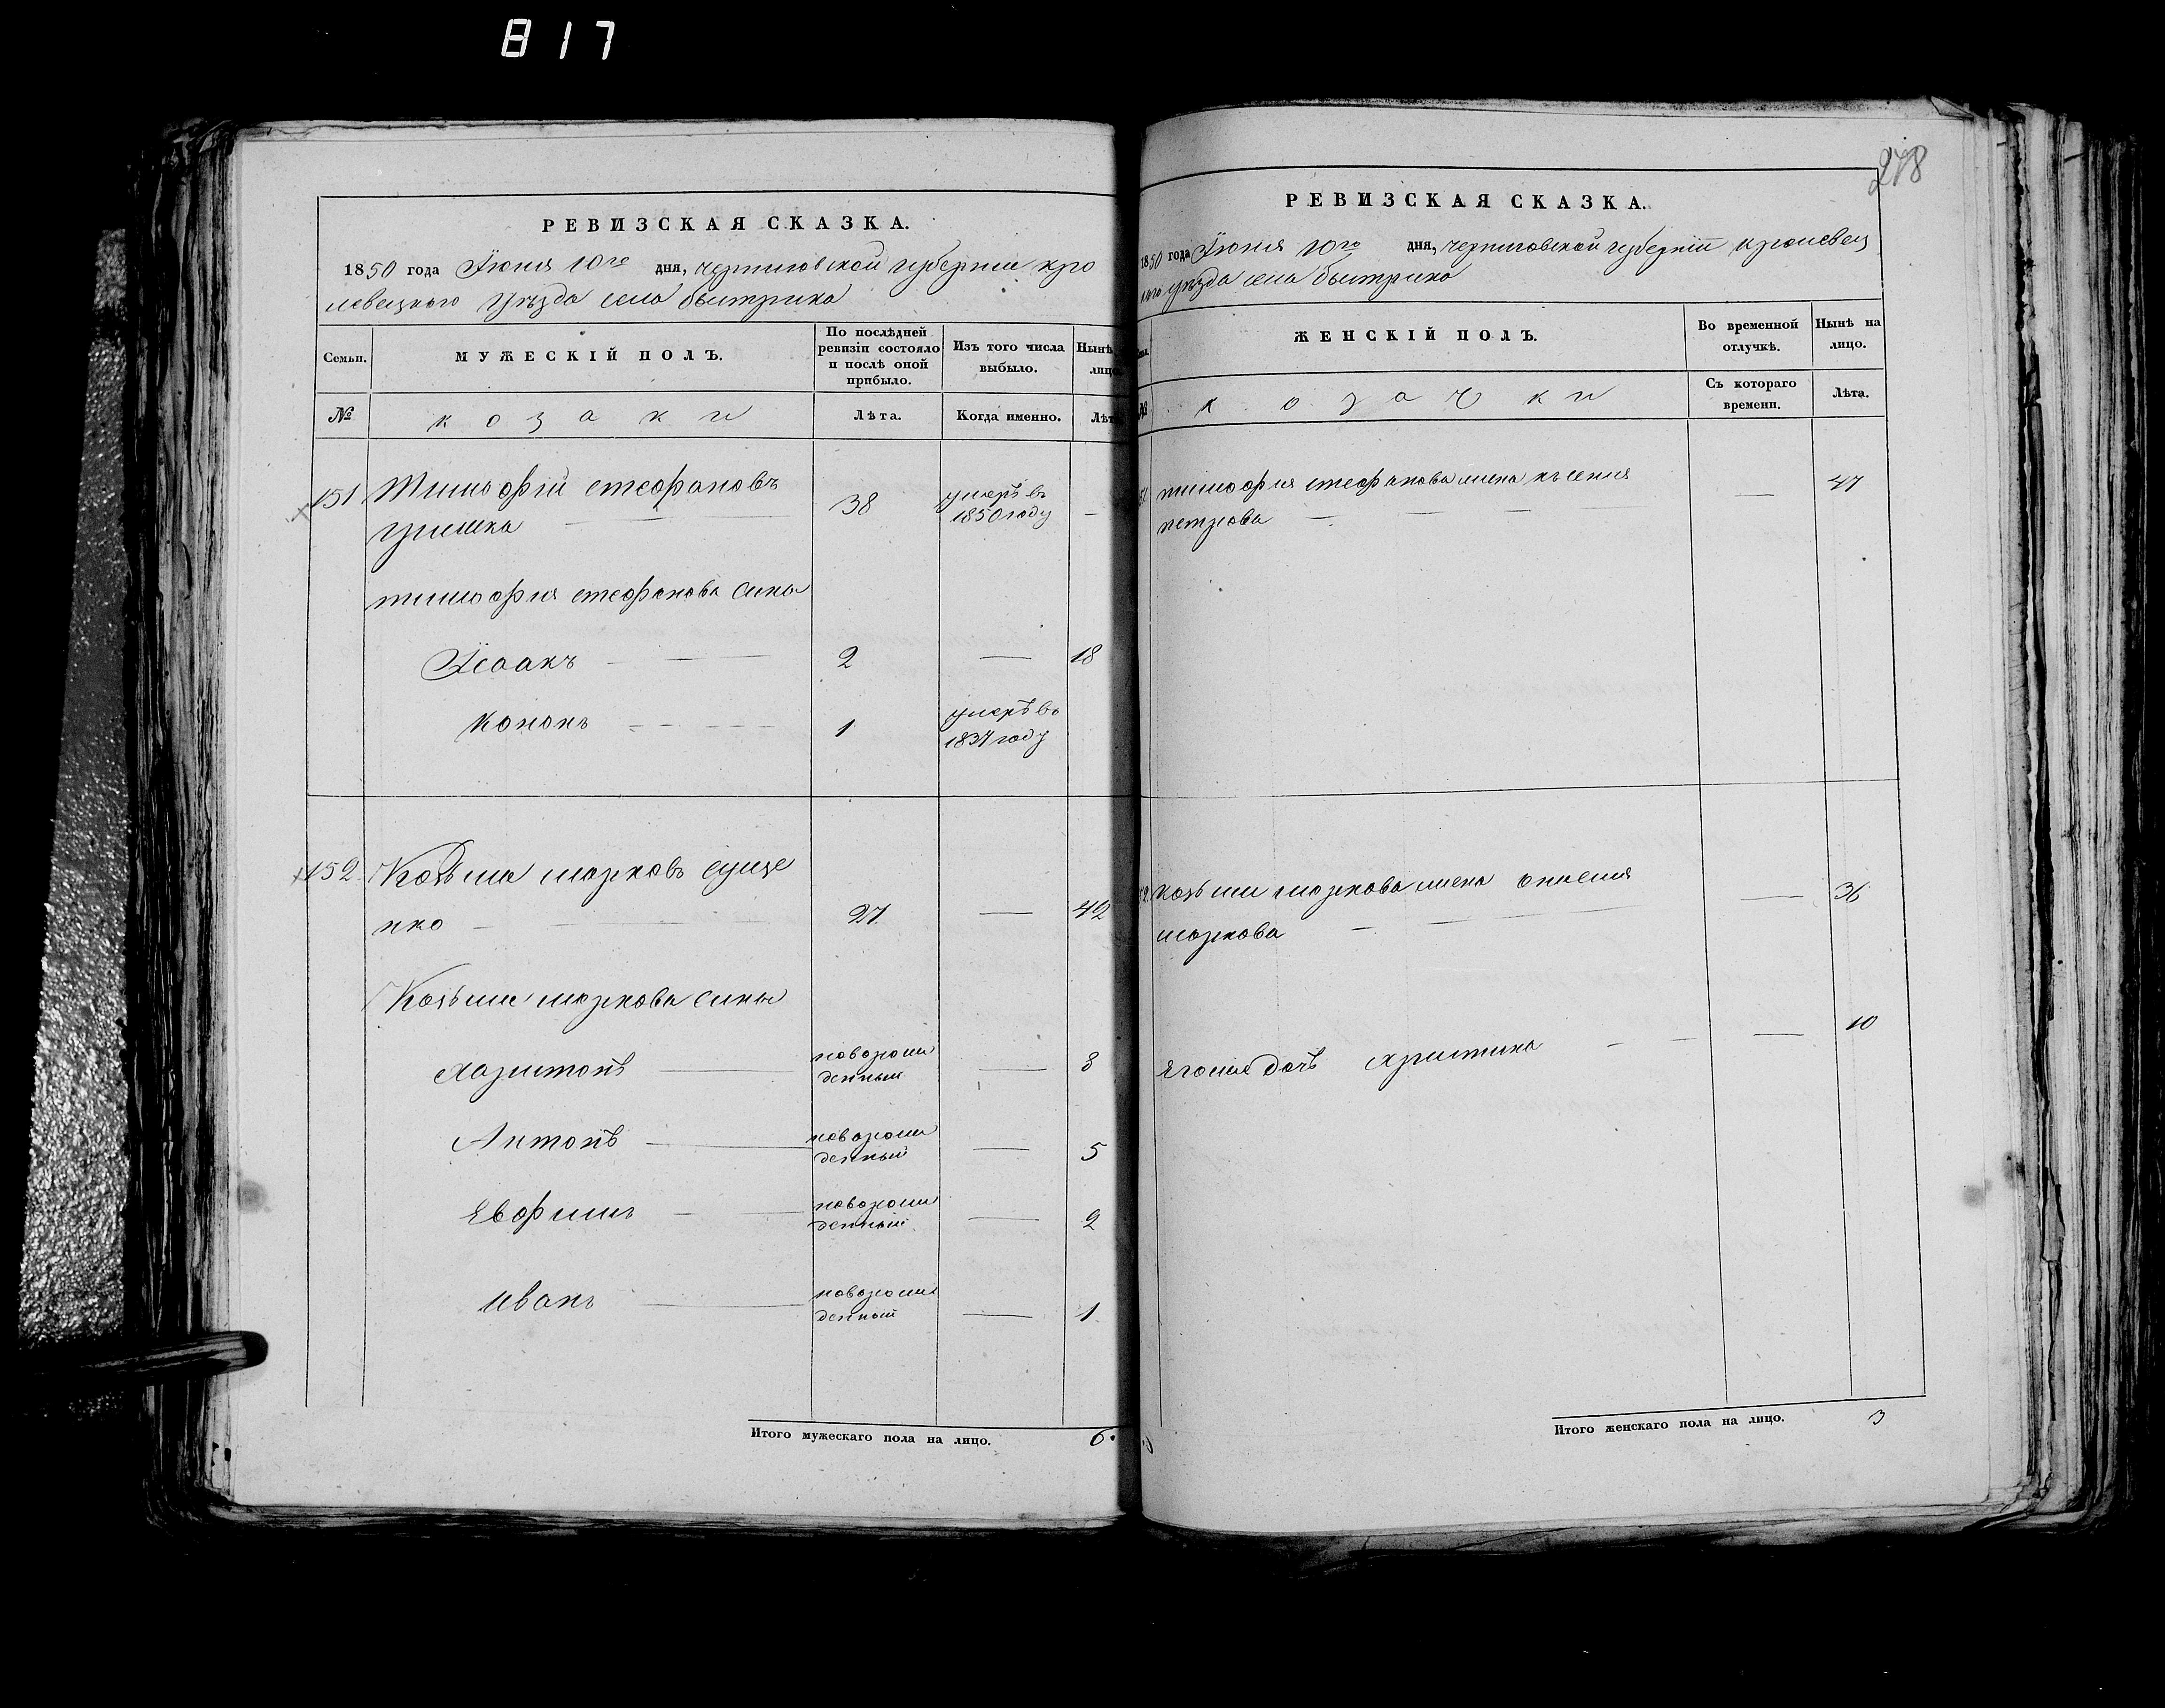 817
278
РЕВИЗСКАЯ СКАЗКА.
1850 года Іюня 10го дня, черниговской губерніи кро
левецкого уѣзда села быстрика
Семьи.
МУЖЕСКІЙ ПОЛЪ.
По послѣдней ревизіи состояло и послѣ оной прибыло.
Изъ того числа выбыло.
Нынѣ
лицо
№
козаки
Лѣта.
Когда именно.
Лѣт
151 Тимофій стефановъ
гришка 38 умерѣ въ 1850 году —
тимофия стефанова сины
Ісаакъ 2 — 18
кононъ 1 умерѣ въ 1837 году
152 Козьма марковъ суще
нко 27 — 42
Козьми маркова сины
харитонѣ новорож денный — 8
Антонѣ новорож денный — 5
Евфимъ новорож денный — 2
иванъ новорож денный — 1
Итого мужескаго пола на лицо. 6.
РЕВИЗСКАЯ СКАЗКА.
1850 года Іюня 10го дня, черниговской губерніи кролевец
кого уѣзда села быстрика
ЖЕНСКІЙ ПОЛЪ.
Во временной отлучкѣ.
Нынѣ на лицо.
№
козачки
Съ котораго времени.
Лѣта.
тимофия стефанова жена ксения
петрова — 47
козьми маркова жена
маркова — 36
Егоже дочѣ христина — 10
Итого женскаго пола на лицо. 3